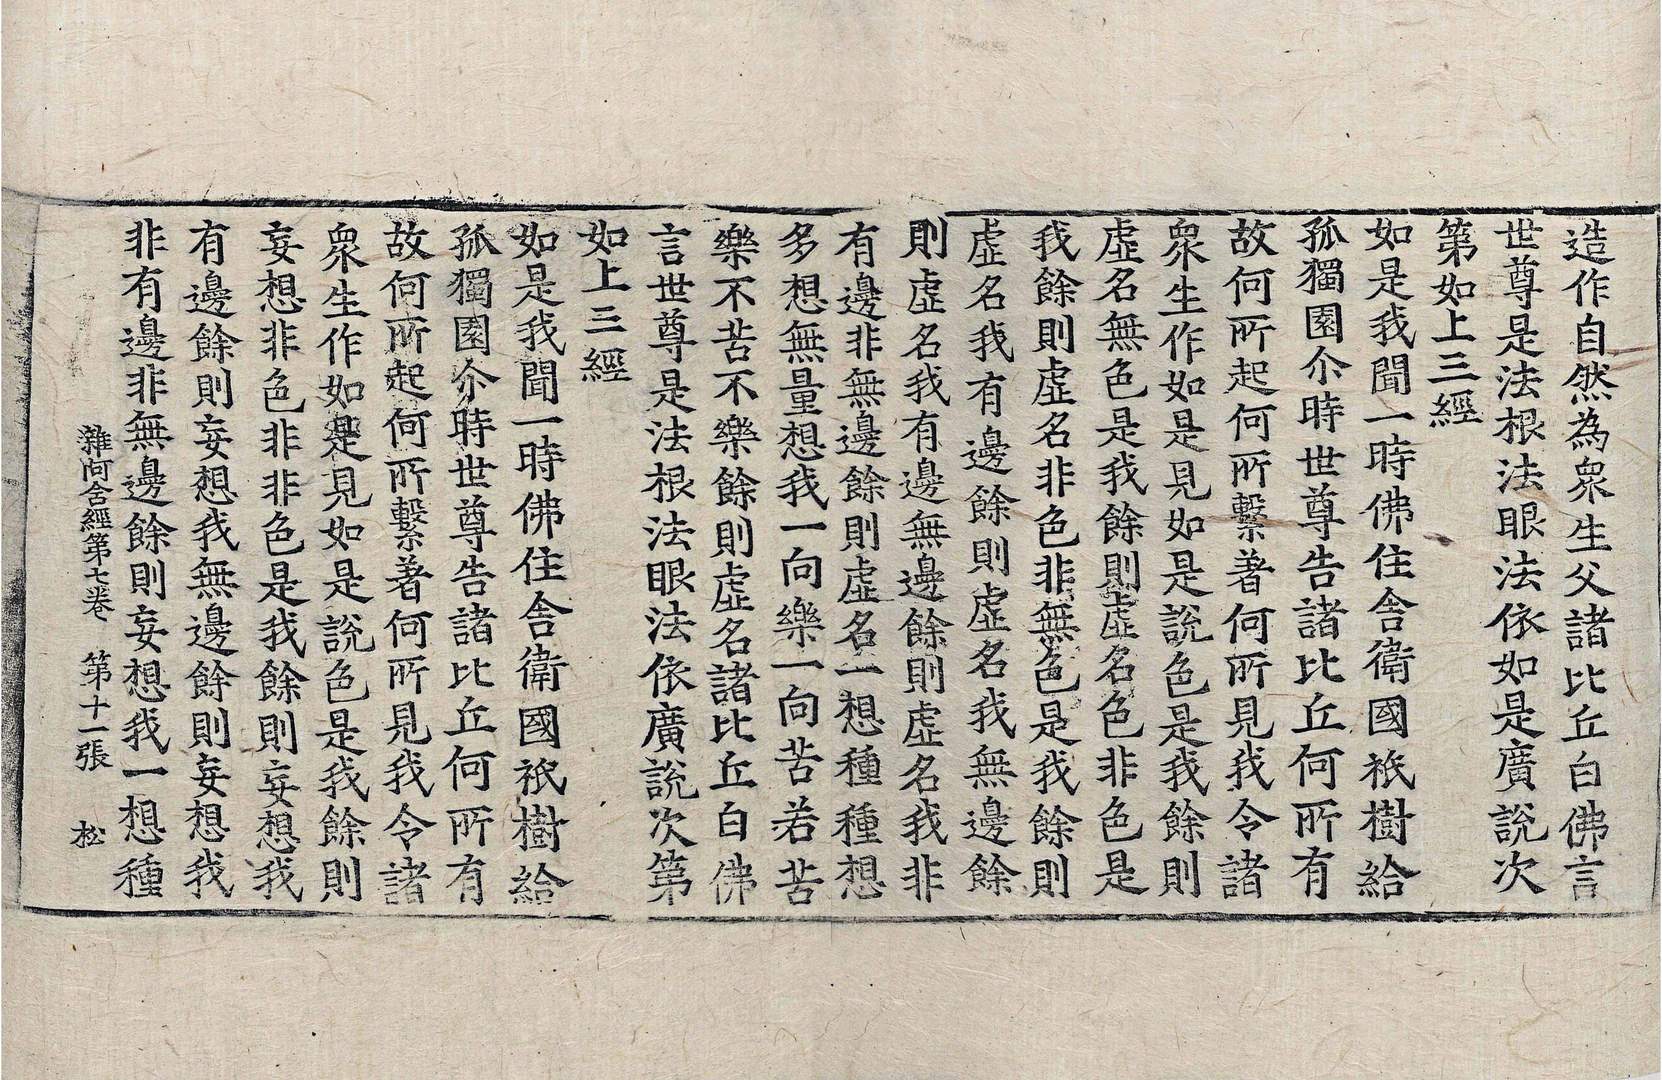 造作自然為衆生父諸比丘白佛言
世尊是法根法眼法依如是廣說次
第如上三經
如是我聞一時佛住舍衛國祇樹給
孤獨園尒時世尊告諸比丘何所有
故何所起何所繫著何所見我令諸
衆生作如是見如是說色是我餘則
虛名無色是我餘則虛名色非色是
我餘則虛名非色非無色是我餘則
虛名我有邊餘則虛名我無邊餘
則虛名我有邊無邊餘則虛名我非
有邊非無邊餘則虛名一想種種想
多想無量想我一向樂一向苦若苦
樂不苦不樂餘則虛名諸比丘白佛
言世尊是法根法眼法依廣說次第
如上三經
如是我聞一時佛住舍衛國祇樹給
孤獨園尒時世尊告諸比丘何所有
故何所起何所繫著何所見我令諸
衆生作如是見如是說色是我餘則
妄想非色非非色是我餘則妄想我
有邊餘則妄想我無邊餘則妄想我
非有邊非無邊餘則妄想我一想種
雜阿含經第七卷 第十一張 松